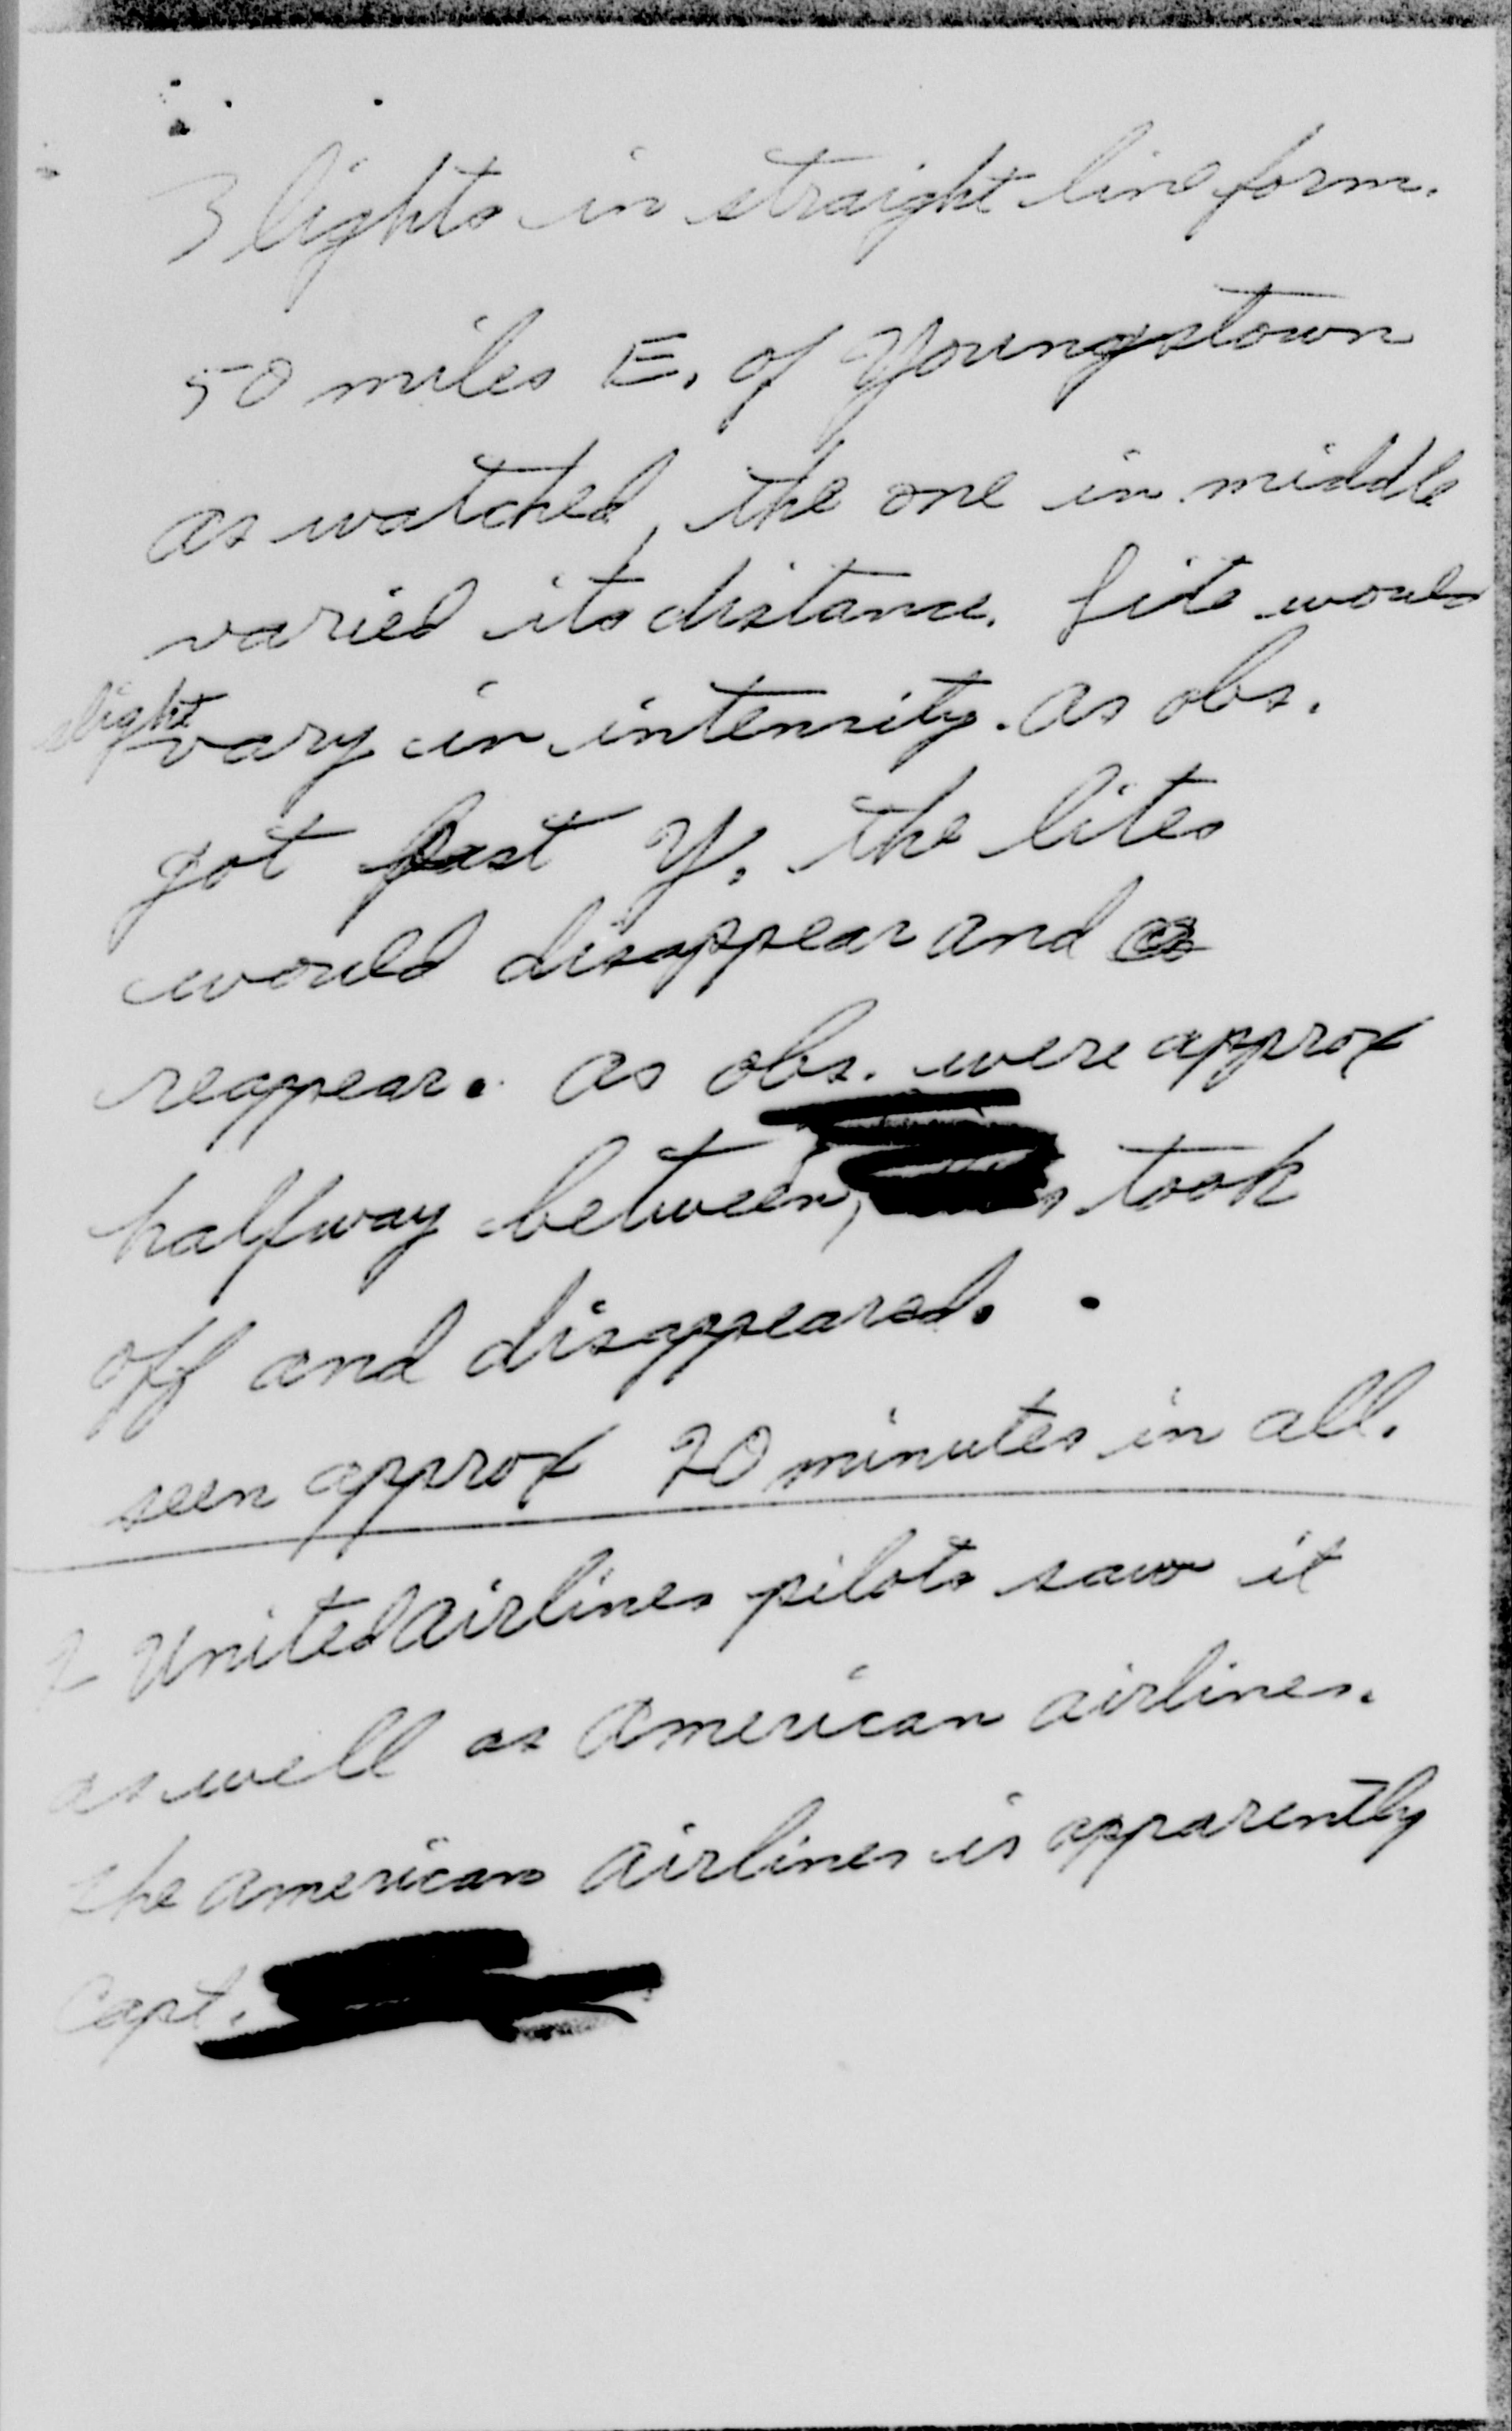 3 lights in straight line form.
50 miles E. of Youngstown
as watched, the one in middle
varied its distance. Lite would
slight vary in intensity. as obs.
got past Y, the lites
would disappear and
reappear. as obs. were approx
halfway between, took
off and disappeared.
seen approx 20 minutes in all.
2 United Airlines pilots saw it
as well as American airlines.
the American Airlines is apparently
Capt.